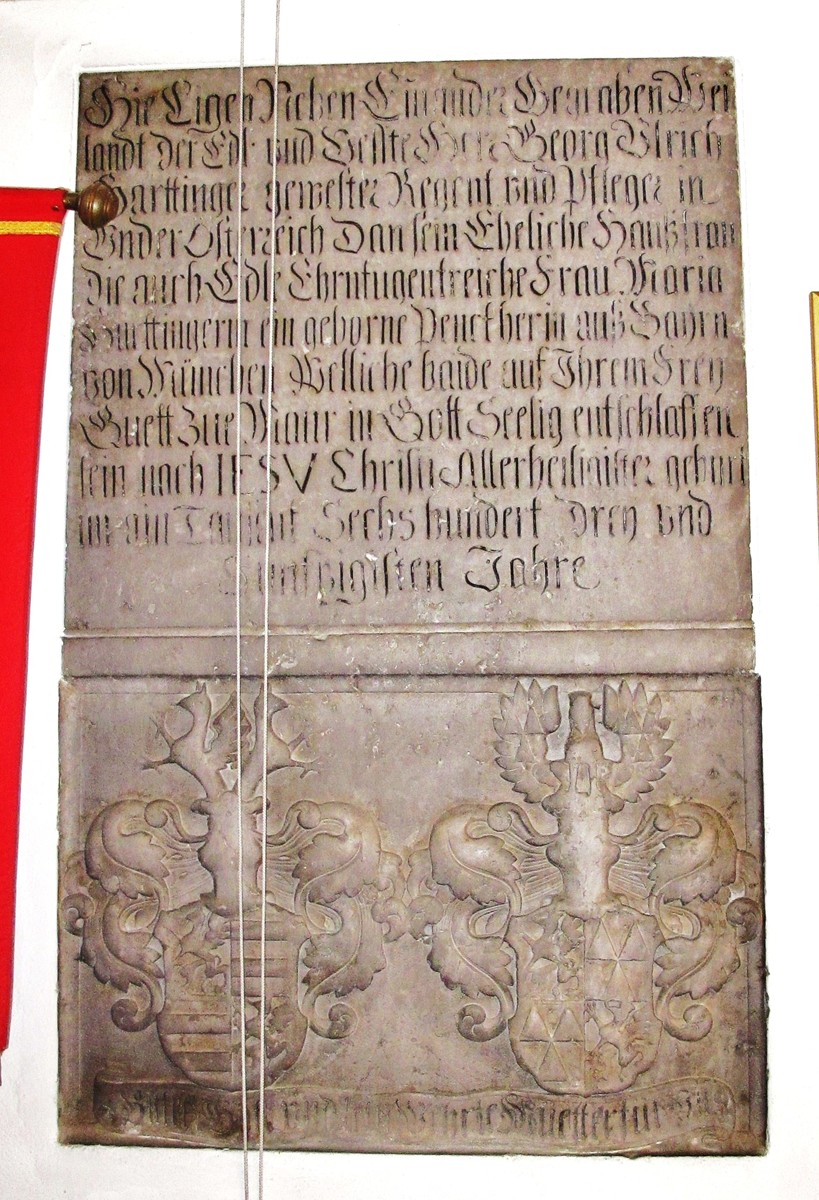 Hie Ligen Neben Einander Begraben Wei
landt der Edl und Veste Herr Georg Vlrich
Harttinger gewester Regent und Pfleger in
Vnder Osterreich Dan sein Eheliche Haußfrau
die auch Edle Ehrntugentreiche Frau Maria
Harttingerin ein geborne Penckherin auß Bayrn
von München Welliche baide auf Ihrem Frey
Guett zue Maur in Gott Seelig entschlaffen
sein nach IESV Christi Allerheiligister geburt
im ain Tausent Sechs hundert drey und
Funfzigisten Jahre
Gott und sein Muetter für